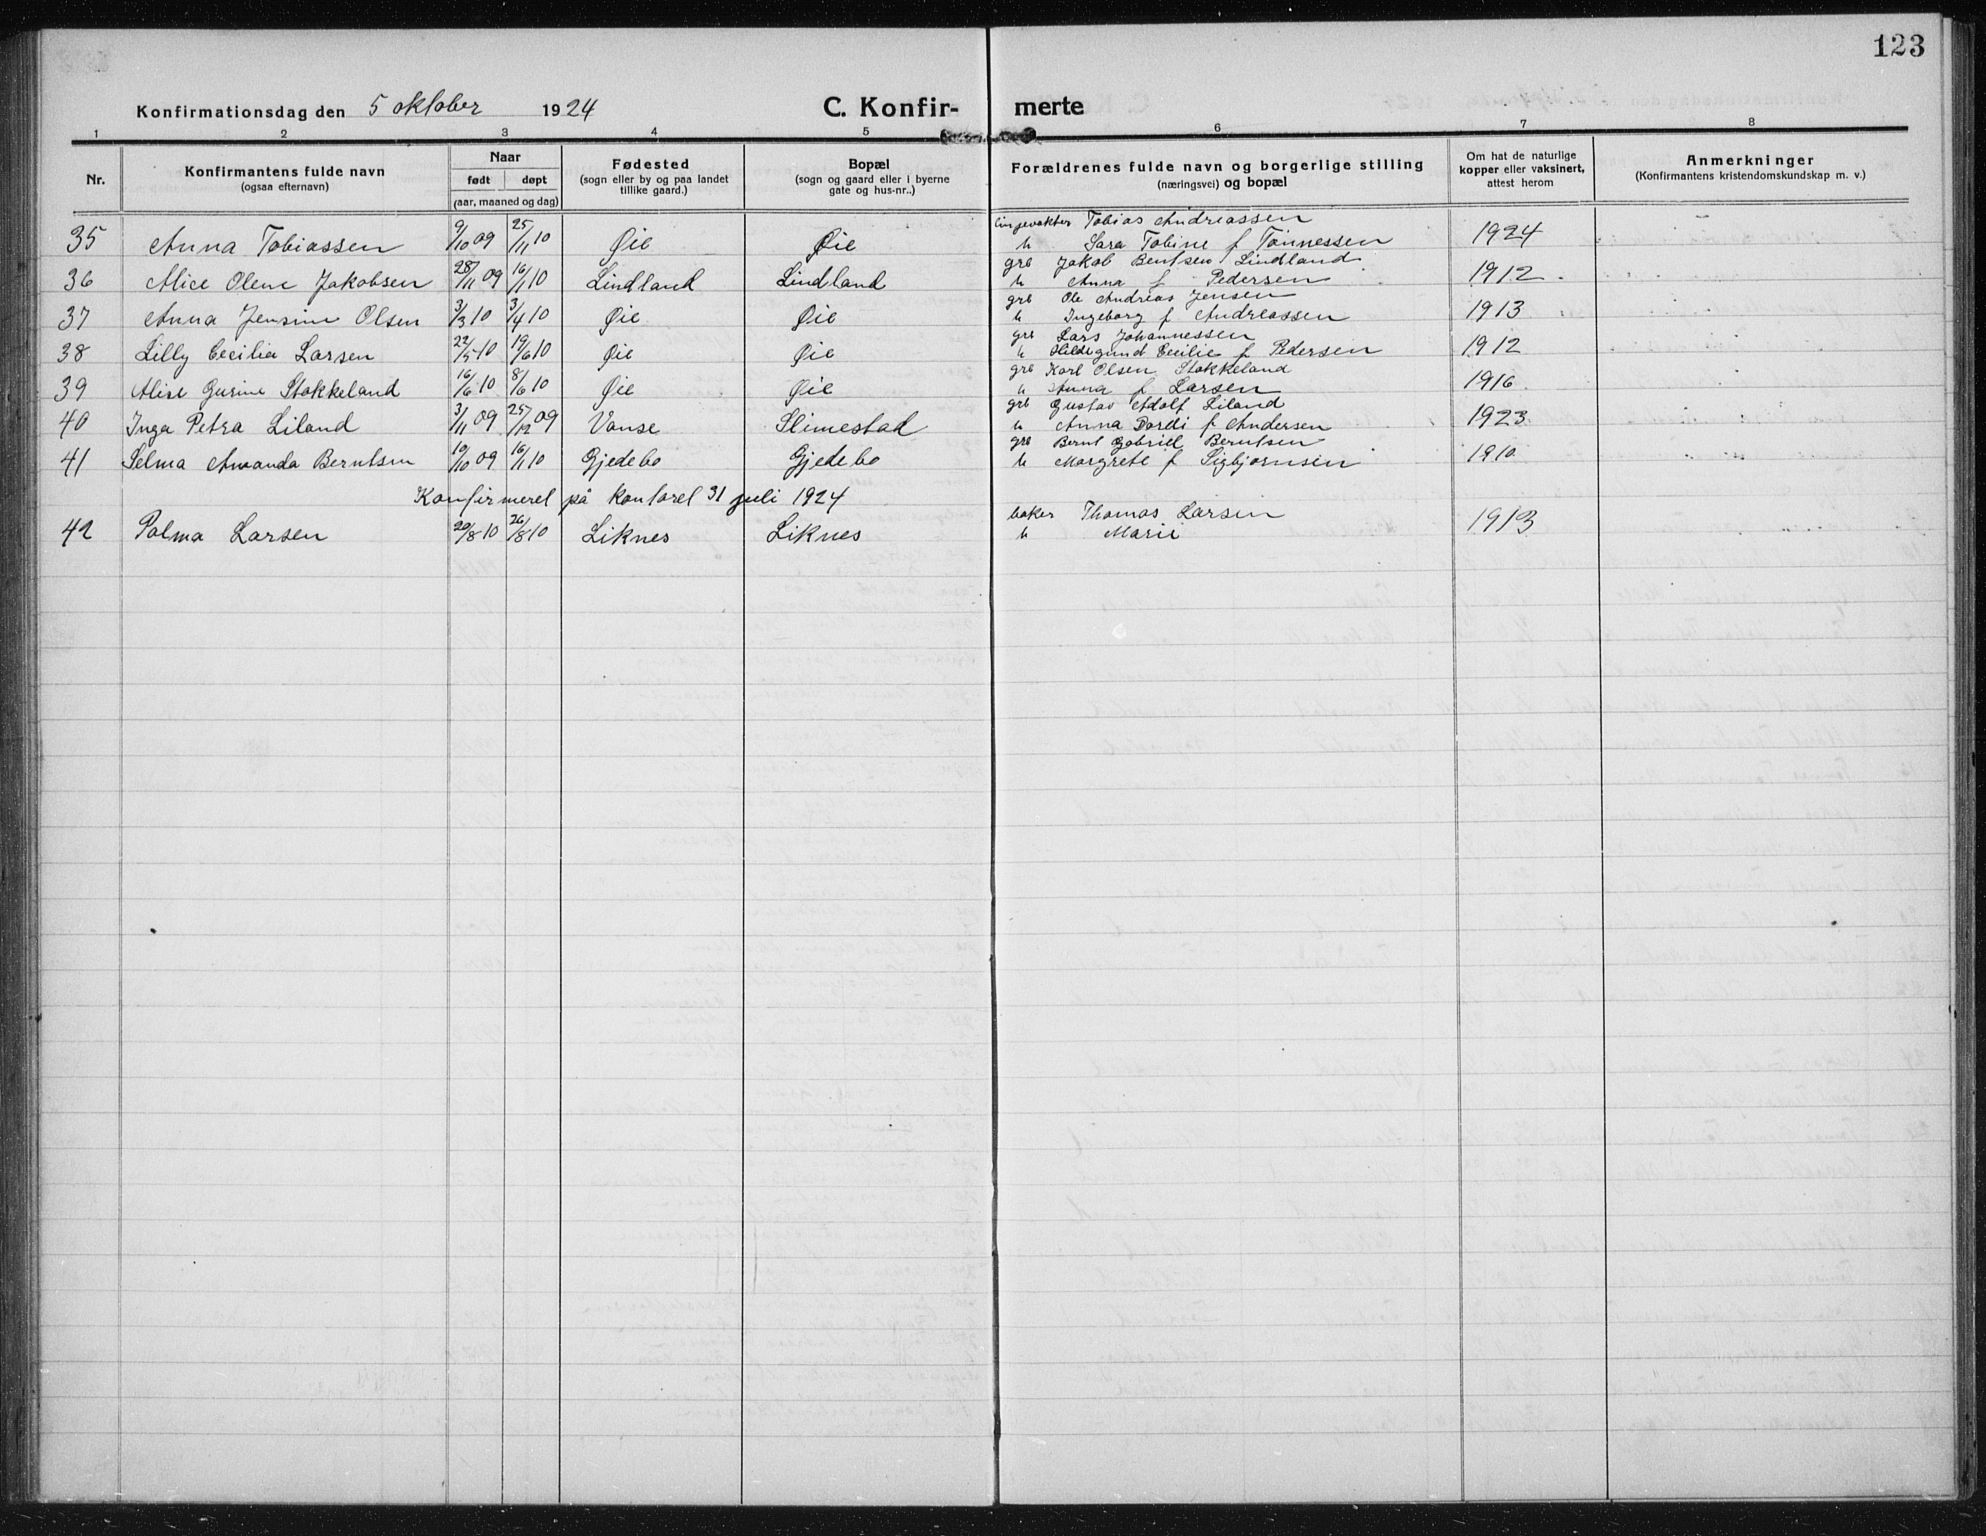 123
Konfirmationsdag den 5 oktober 1924 C. Konfir- merte
1 2 3 4 5 6 7 8
Nr. Konfirmantens fulde navn (ogsaa efternavn)
Naar født døpt (aar, maaned og dag)
Fødested (sogn eller by og paa landet tillike gaard.)
Bopæl (sogn og gaard eller i byerne gate og hus-nr..)
Forældrenes fulde navn og borgerlige stilling (næringsvei) og bopæl
Om hat de naturlige kopper eller vaksinert, attest herom
Anmerkninger (Konfirmantens kristendomskundskap m. v.)
35 Anna Tobiassen 9/10 09 25/11 10 Øie Øie Tobias Andreassen
h Sara Tobine f Tønnessen 1924
36 Alice Olene Jakobsen 28/11 09 16/1 10 Lindland Lindland grb Jakob Bentsen Lindland
h Anna f Pedersen 1912
37 Anna Jensine Olsen 3/3 10 3/4 10 Øie Øie grb Ole Andreas Jensen
h Ingeborg f Andreassen 1913
38 Lilly Cecilia Larsen 22/5 10 19/6 10 Øie Øie grb Lars Johannessen
h Hildegund Cecilie f Pedersen 1912
39 Alise Gurine Stokkeland 16/6 10 8/6 10 Øie Øie grb Karl Olsen Stokkeland
h Anna f Larsen 1916
40 Inga Petra Liland 3/11 09 25/12 09 Vanse Slimestad grb Gustav Adolf Liland
h Anna Dordi f Andersen 1923
41 Selma Amanda Berntsen 10/10 09 16/1 10 Gjedebo Gjedebo grb Bernt Gabriel Berntsen
h Margrete f Sigbjørnsen 1910
Konfirmeret på kontoret 31 juli 1924
42 Palma Larsen 20/8 10 26/8 10 Liknes Liknes baker Thomas Larsen
h Marie 1913